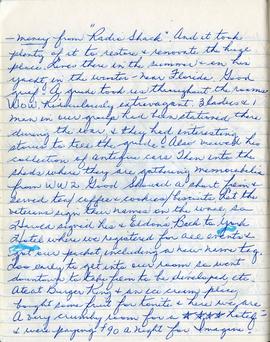 - money from "Radio Shack" And it took
plenty of it to restore & renovate the huge
place. Lives there in the summer & on his
yacht in the winter - near Florida. Good
grief. A guide took us throughout the rooms
WOW. Miraculously extravagant. 3 ladies & 1
man in our group had been stationed there
during the war & they had interesting
stories to tell the guide. Also viewed his
collection of antique cars. Then into the
sheds where they are gathering memorabilia
from WW2. Good. Showed a short film &
served tea, coffee & cookies/biscuits. All the
veterans sign their names on the wall, so
signed his & Eldons. Back to
where we registered for all events &
got our packet including a new name tag.
Too early to get into our room so went
downtown to film to be developed etc.
Ate at Burger King & an ice cream place,
bought some fruit for tonite & here we are
A very crumby room for a hotel
& were paying $90 a night for. Imagine.